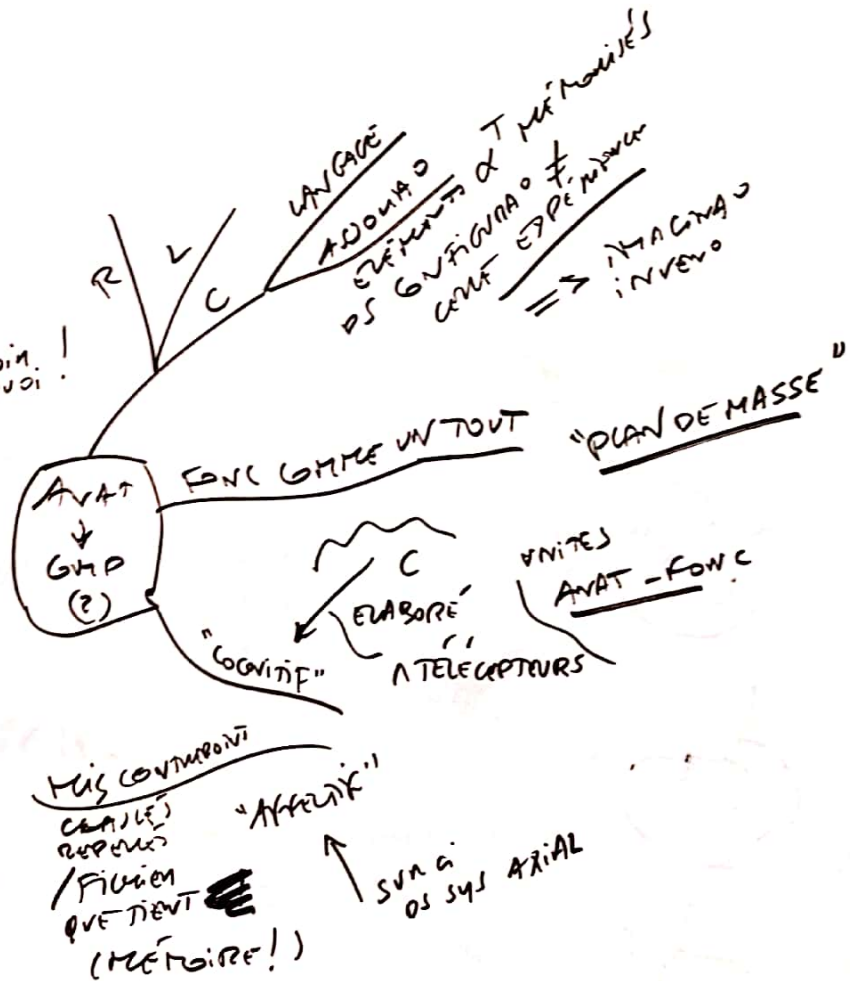 LANGAGE
ASSOCIAO
ÉLÉMENTS α T MÉMORISÉS
DS CONFIGURAO ≠
CELLE EXPÉRIENCE
=> IMAGINAO
INVENO
R
L
C
VOI !
ANAT
↓
CMP
(?)
FONC COMME UN TOUT
"PLAN DE MASSE"
C
ELABORÉ
TÉLÉCEPTEURS
UNITES
ANAT-FONC
"COGNITIF"
MIS CONTREPOINT
CLASSÉS
REPERÉS
/FICHIER
QUE TIENT
(MÉMOIRE !)
"AFFECTIF"
DS SYS AXIAL